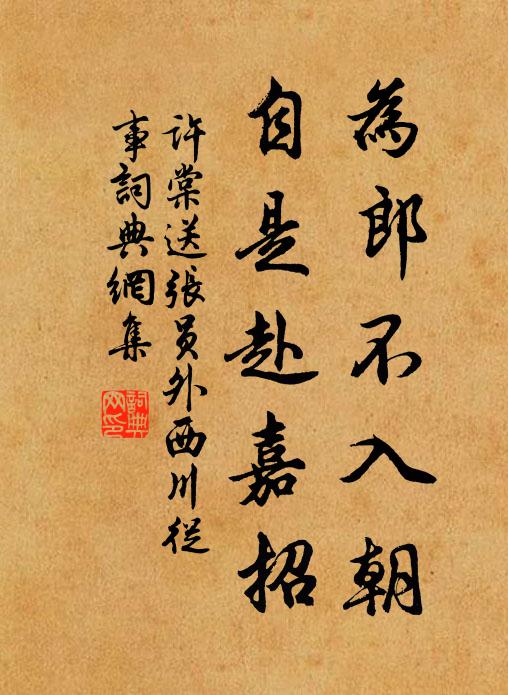 為郎不入朝
自是赴嘉招
許棠送張員外西川從
事詞典網集
詞典
網印